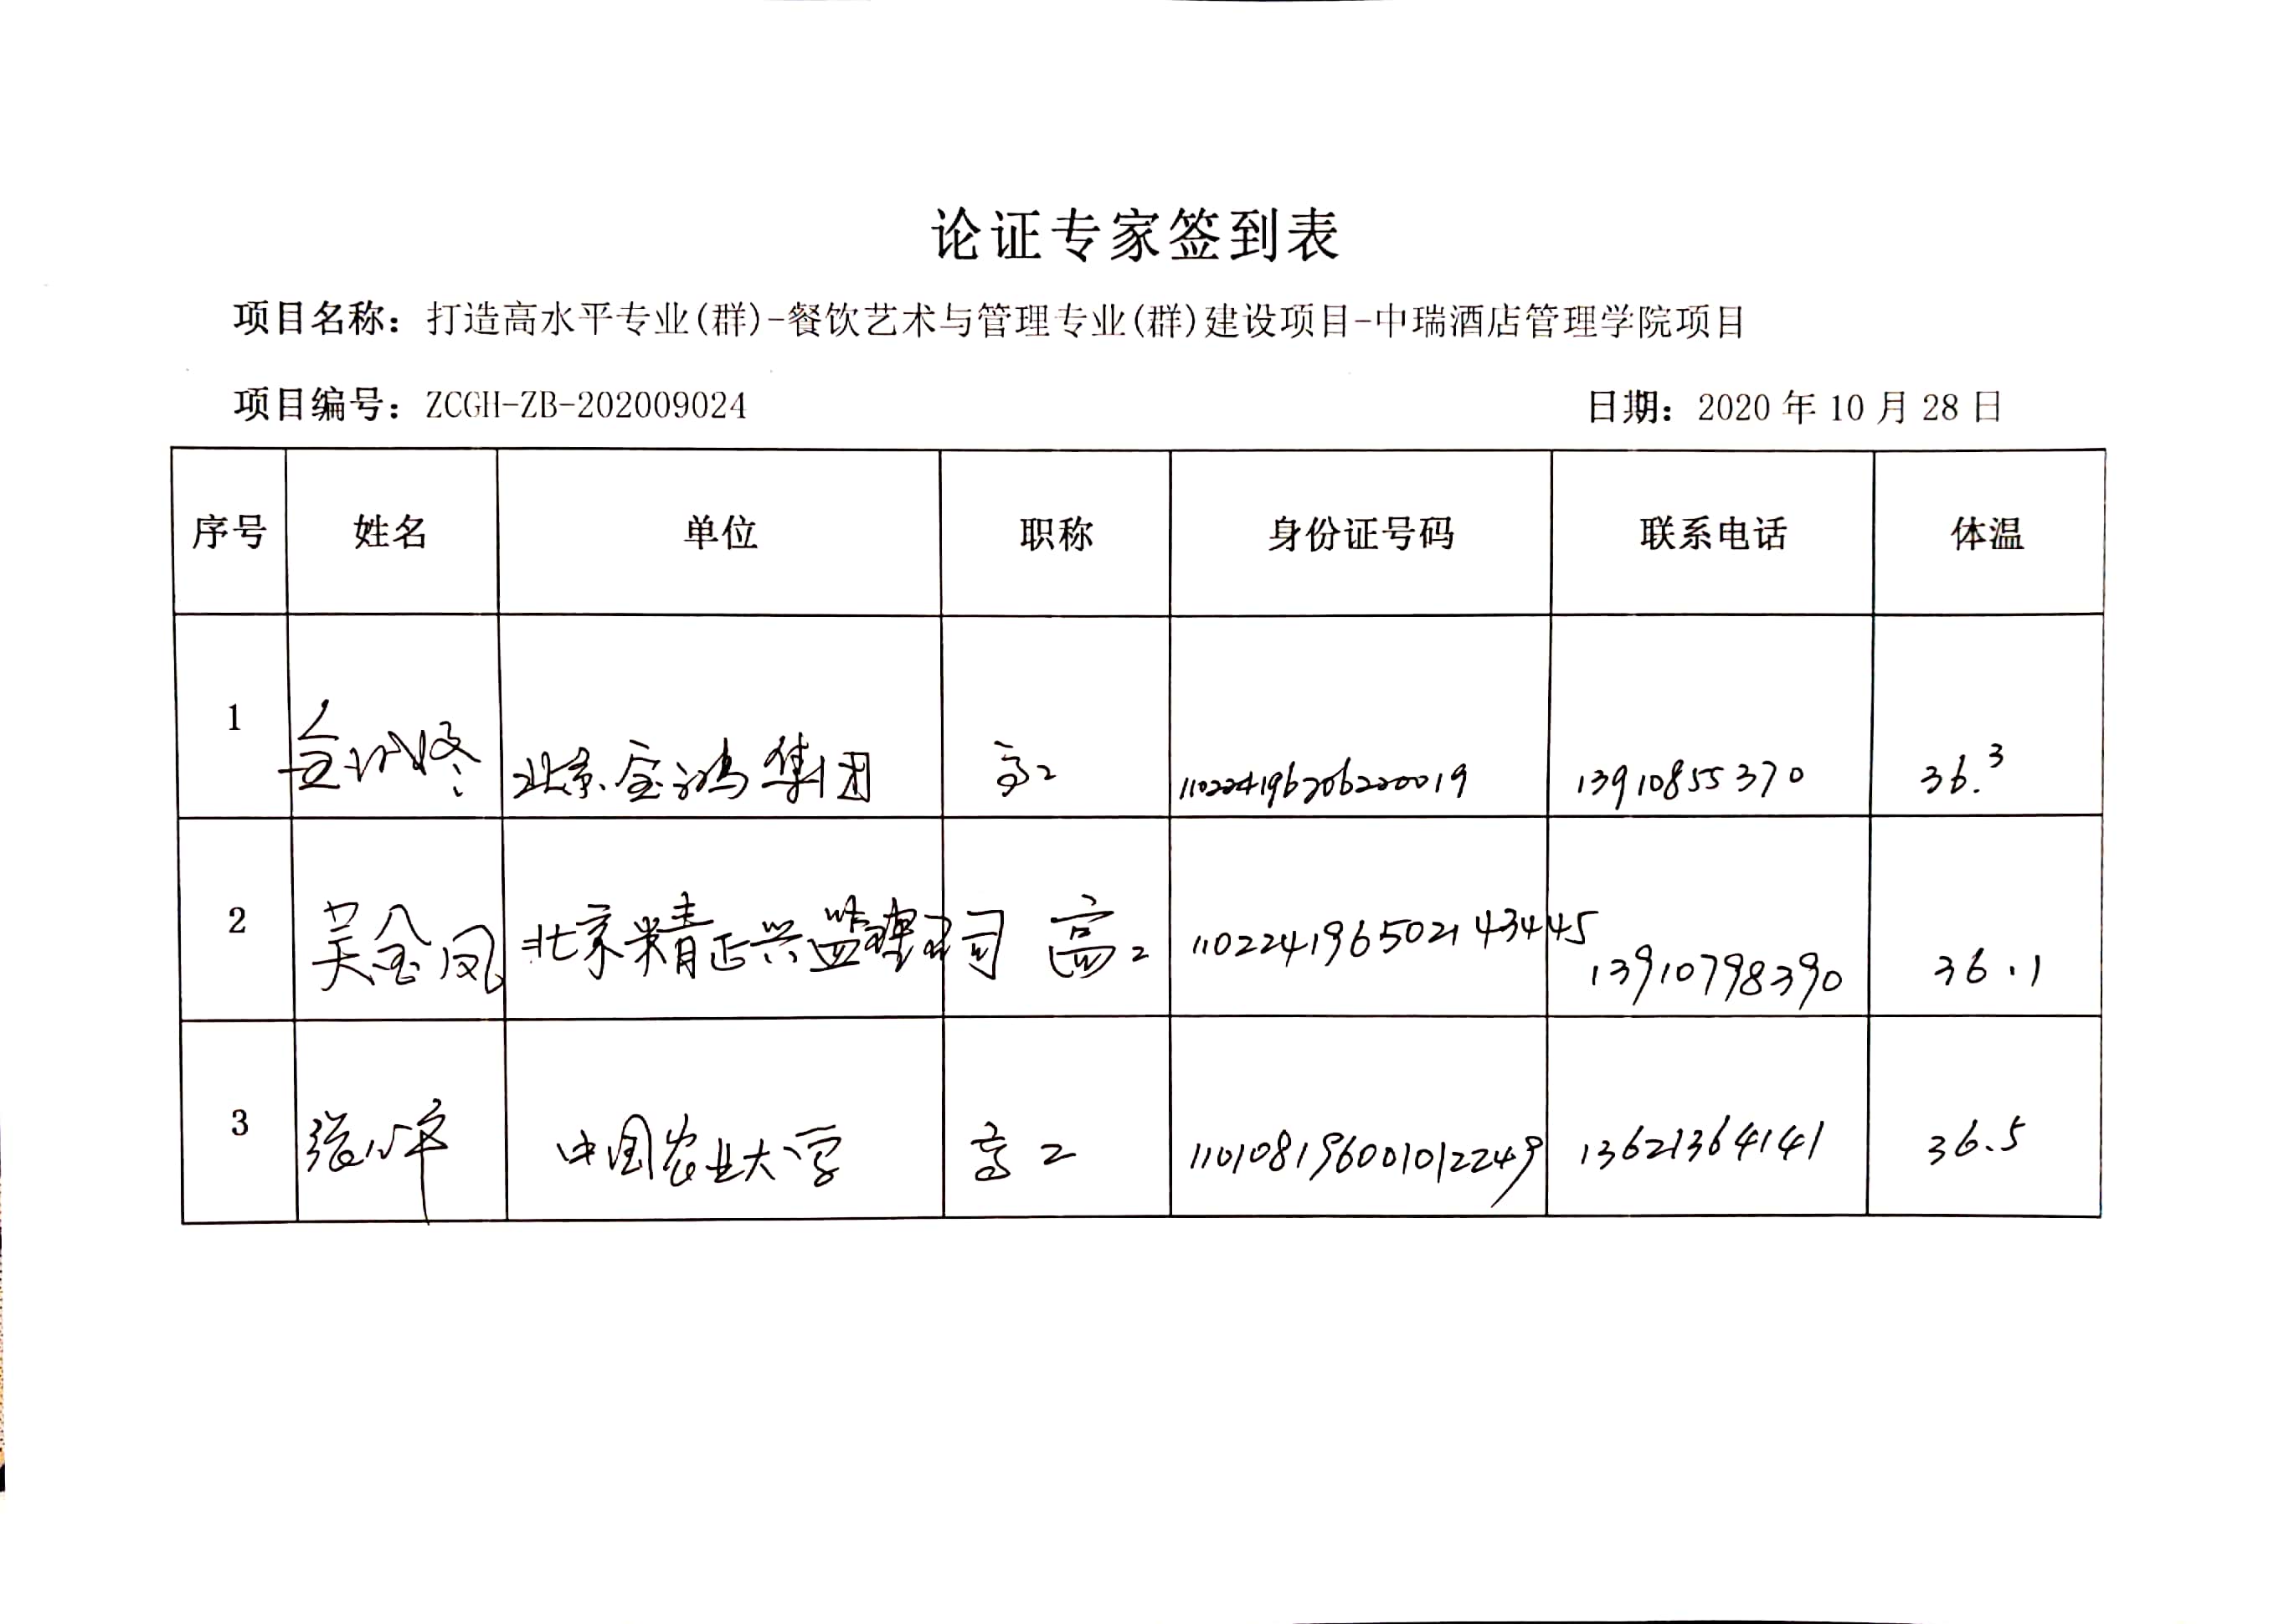 论证专家签到表
项目名称：打造高水平专业(群)-餐饮艺术与管理专业(群)建设项目-中瑞酒店管理学院项目
项目编号：ZCGH-ZB-202009024 日期：2020 年 10 月 28 日
序号 姓名 单位 职称 身份证号码 联系电话 体温
1 北京 集团 高工 13910855370 36.3
2 吴金凤 北京精正兴监理公司 高工 110224196502143445 13910798390 36.1
3 张 中国农业大学 高工 110108196001012249 13621364141 36.5